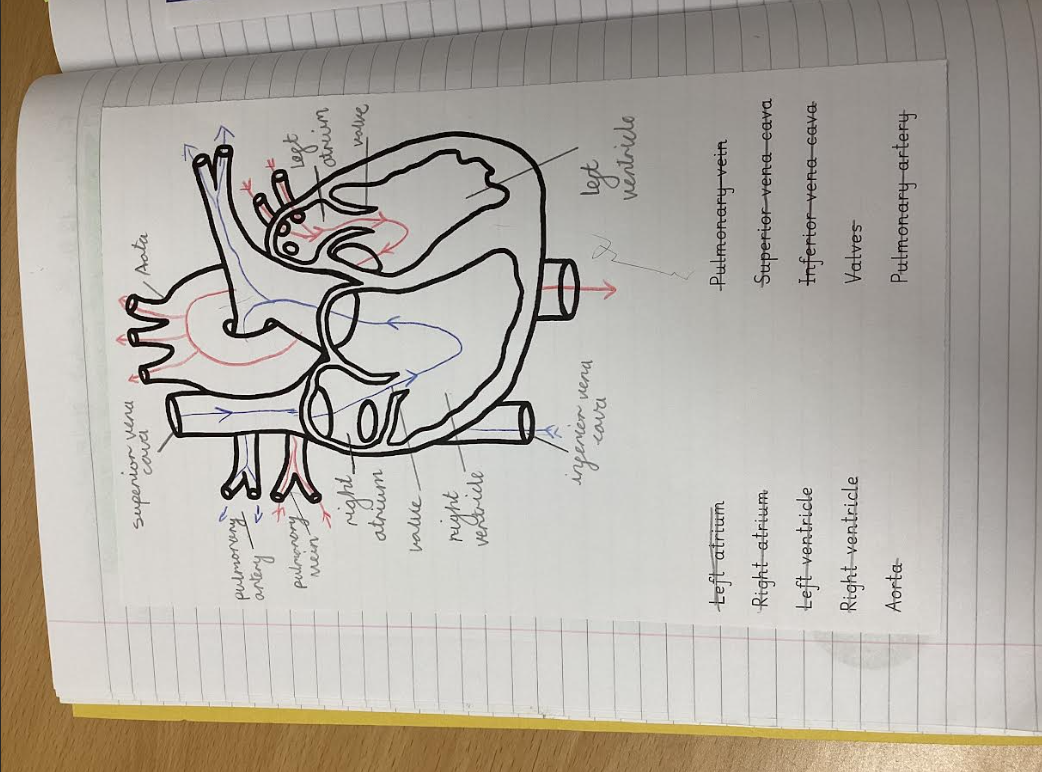 superior vena
cava
Aorta
pulmonary
artery
left
atrium
pulmonary
vein
valve
right
atrium
valve
right
ventricle
inferior vena
cava
left
ventricle
Left atrium
Pulmonary vein
Right atrium
Superior vena cava
Left ventricle
Inferior vena cava
Right ventricle
Valves
Aorta
Pulmonary artery